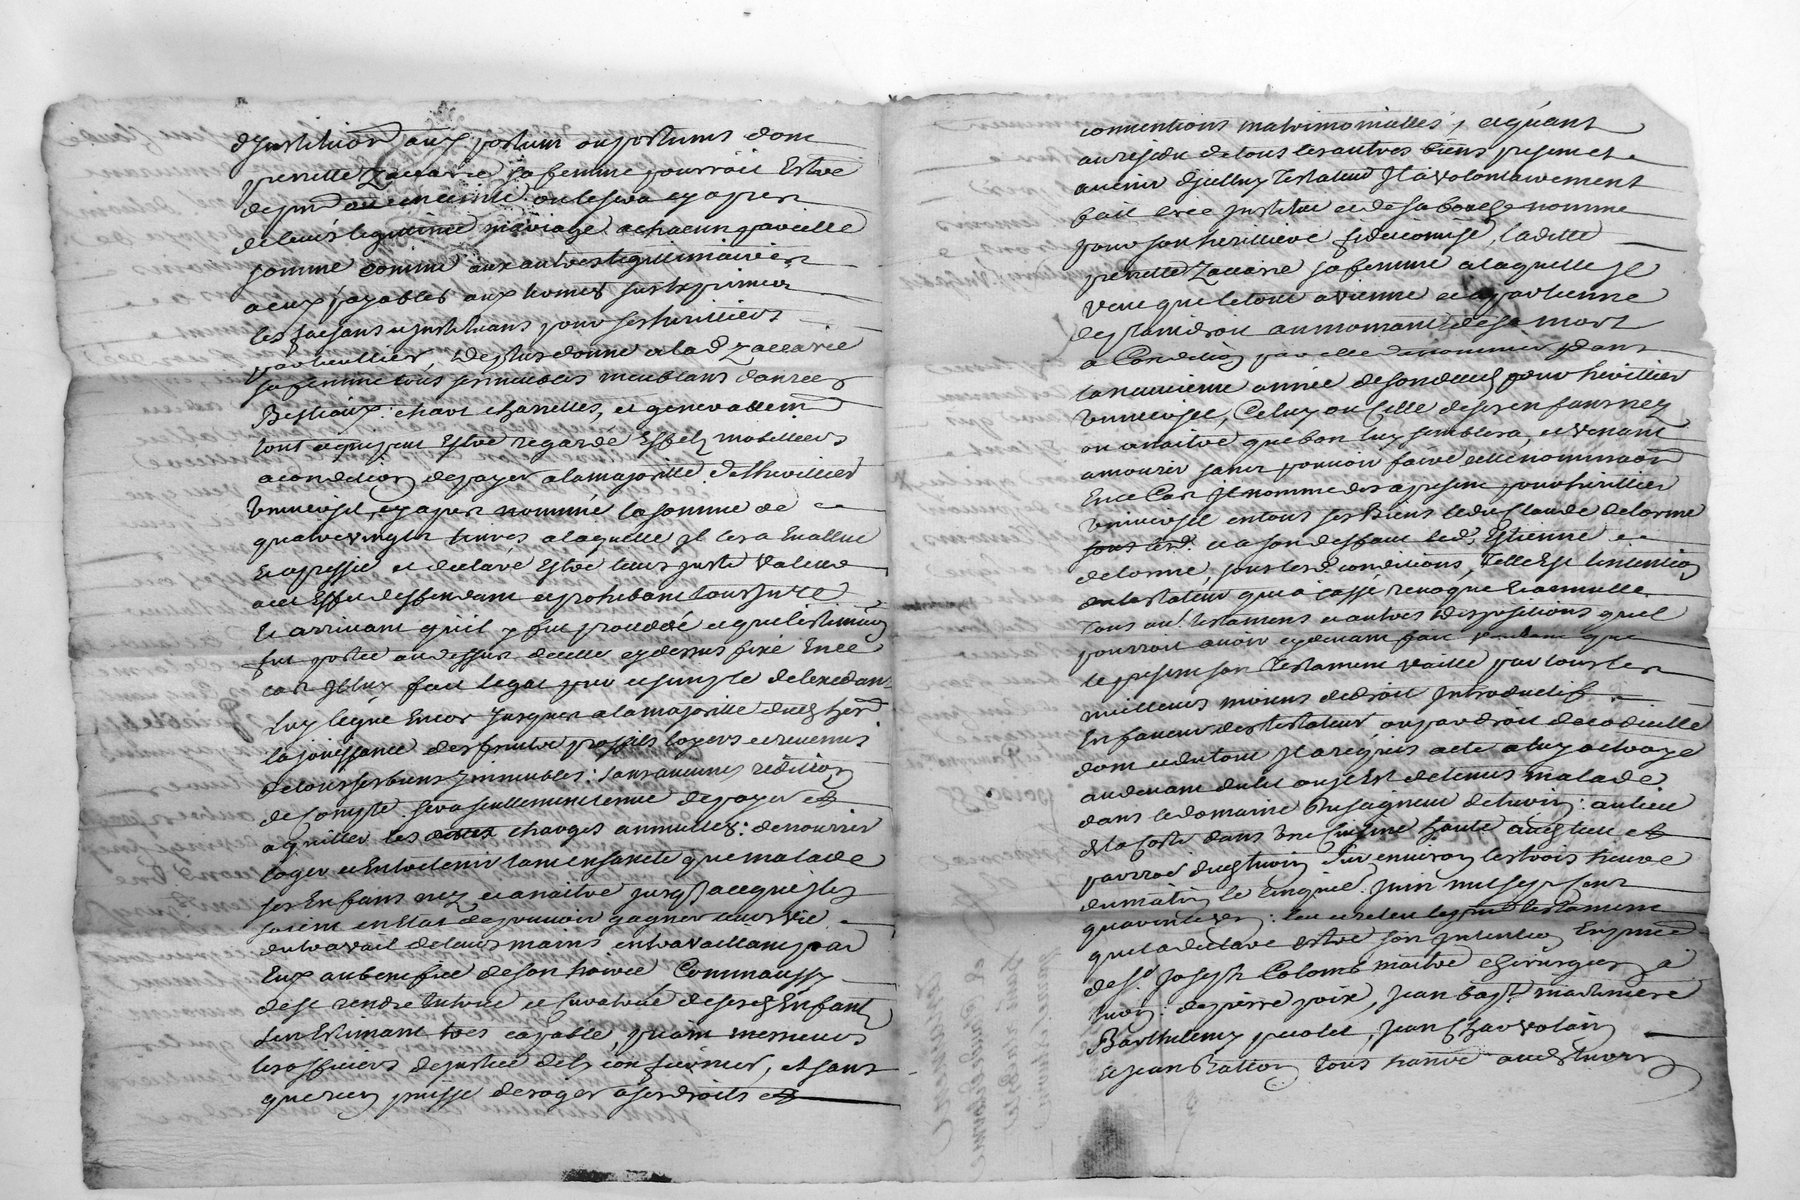 d'Jnstitution aux postum ou postums dont
pierrette Zaccarie sa femme pourroit Estre
de pnt enceinte ou le sera cy apres
de leurs legitime mariage a chacun pareille
somme comme aux autres legitimaires
a eux payables aux termes sus exprimés
les faisans et jnstituans pour ses heritiers
particulliers, de plus donne a lad. Zaccarie
sa femme tous ses meubles meublans danrées
Bestiaux chars charettes, et generallement
tout ce qui peut Estre regardé Effets mobilliers
a condition de payer a la majorité de l'heritier
universel cy apres nommé la somme de
quatre vingts livres a laquelle Jl les a Evallué
Et apressié et declaré Estre leurs juste valleur
a cet Effet deffendant et prohibant tout jnvre
Et arrivant qu'il y fut proceddé et que l'estimation
fut portée au dessus de celle cy dessus fixé En ce
cas Jl luy fait legat pur et simple de l'excedant
luy legue Encor jusques a la majorité dud. her.
la jouissance des fruits proffits loyers et revenus
de tous ses biens Jmmeubles: sans aucunes reddition
de compte sera seullement tenue de payer et
aquitter les charges annuelles: de nourrir
loger et Entretenir tant en santé que malade
ses Enfans nez et a naitre jusqu'a ce qu'ils
soient en Etat de pouvoir gagner leurs vie
du travail de leurs mains en travaillant par
Eux au benefice de son hoirie Comm'aussy
de se rendre tutrice et curatrice de sesd. Enfants
l'en Estimant tres capable, priant messieurs
les officiers de justice de la confirmer, et sans
que rien puisse deroger a ses droits et
conventions matrimonialles, et quant
au residu de tous les autres biens present et
avenir d'jcelluy testateur Jl a volontairement
fait créé jnstitué et de sa bouche nommé
pour son heritiere fideicomise, laditte
pierrette Zaccarie sa femme a laquelle Jl
veut que le tout avienne et apartienne
de plain droit au moment de sa mort
a Condition par elle de nommer dans
la neuvieme année de son deuil pour heritier
universel, Celuy ou celle de ses enfans nez
ou a naitre que bon luy semblera, et venant
a mourir sans pouvoir faire cette nomination
En ce Cas Jl nomme des a present pour heritier
universel en tous ses Biens led. Claude delorme
et a son deffaut led. Estienne
delorme, sous lesd. conditions, telle Est l'intention
du testateur qui a cassé revoque Et annulle
tous au. testamens et autres dispositions qu'il
pourroit avoir cy devant fait voulant que
le present son testament vaille par tous les
meilleurs moiens de droit Jntroductif
En faveur des testateurs, ou par droit de codicille
dont et du tout Jl a requis acte a luy octroyé
au devant du lit ou jl Est detenus malade
dans le domaine du seigneur de thurin: au lieu
de la Coste dans une Cuisine haute aud. lieu et
parroisse dud. thurin Sur environ les trois heures
du matin le Cinquie. juin mil sept cent
quarente: leu et releu le pnt testament
qui a declaré estre son Jntention En pnce
de Sr Joseph Colomb maitre chirurgien a
thurin: de pierre poix, jean bapt. martiniere
Barthelemy, jean Charvolain
Et jean Ratton tous habitants aud. thurin